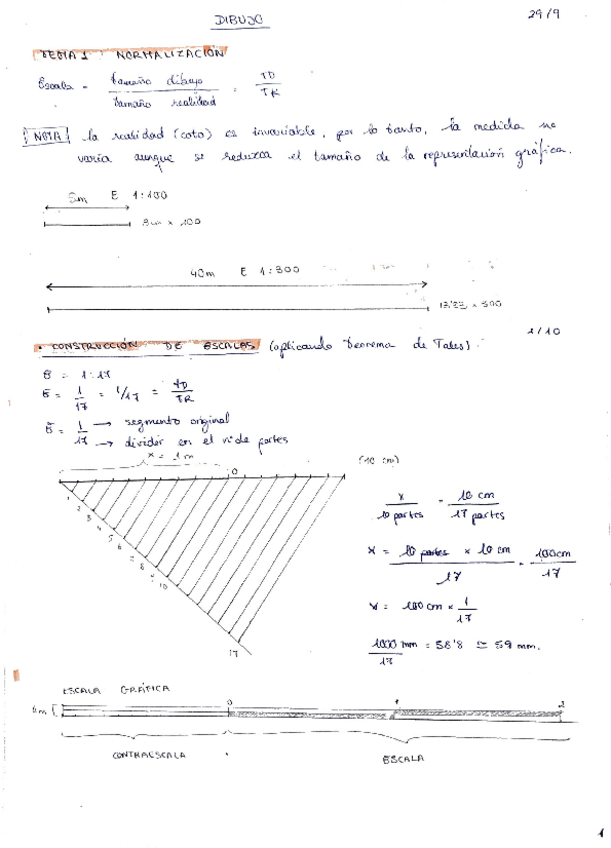 DIBUJO
29/9
TEMA 1 : NORMALIZACIÓN
Escala = tamaño dibujo / tamaño realidad = TD / TR
NOTA la realidad (cota) es invariable, por lo tanto, la medida no
varía aunque se reduzca el tamaño de la representación gráfica.
5m E 1:100
x 100
40m E 1:300
13'33 x 300
1/10
· CONSTRUCCIÓN DE ESCALAS (aplicando teorema de Tales).
E = 1:17
E = 1/17 = 1/17 = TD/TR
E = 1 → segmento original
17 → dividir en el nº de partes
x = 1m
0
(10 cm)
1
2
3
4
5
6
7
8
9
10
17
x / 10 partes = 10 cm / 17 partes
x = 10 partes x 10 cm / 17 = 100cm / 17
x = 100 cm x 1/17
1000 mm / 17 = 58'8 ≃ 59 mm.
ESCALA GRÁFICA
0 1 2
CONTRAESCALA
ESCALA
1